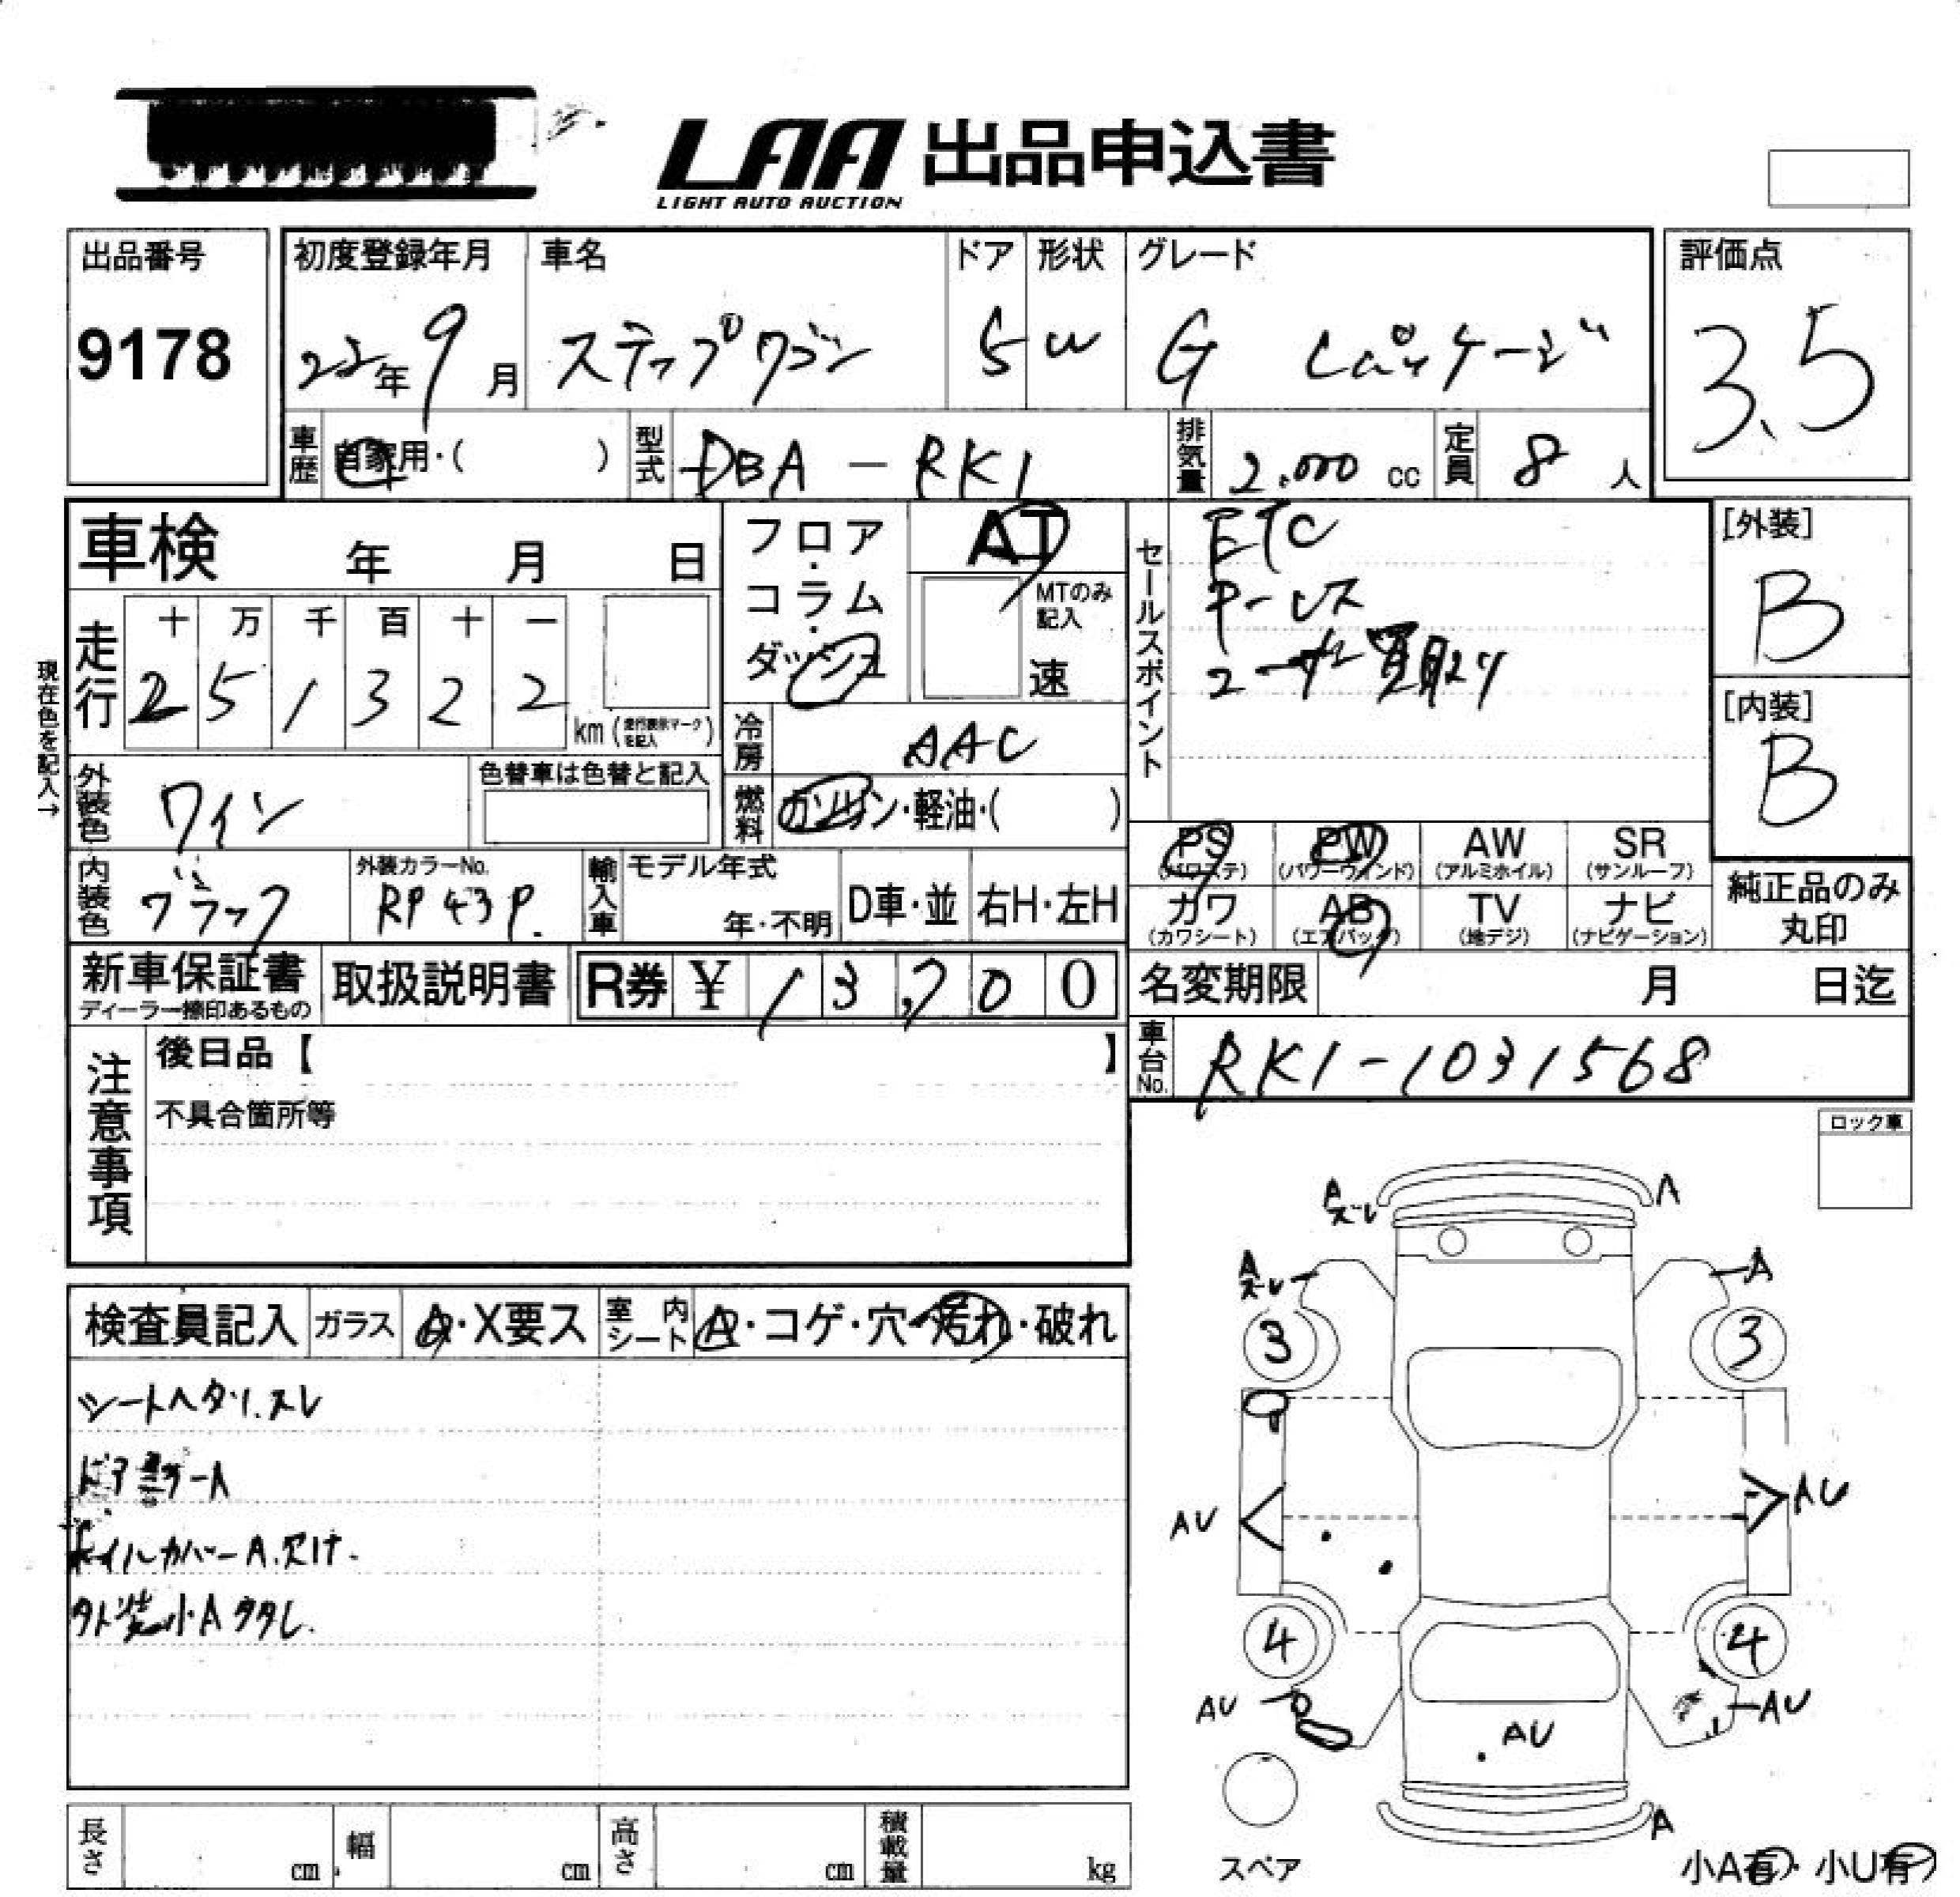 LAA 出品申込書
LIGHT AUTO AUCTION
出品番号
9178
初度登録年月 車名 ドア 形状 グレード
22年 9月 ステップワゴン 5 W G Lパッケージ
評価点
3.5
車歴 自家用・( ) 型式 DBA-RK1 排気量 2,000 cc 定員 8 人
車検 年 月 日
フロア・コラム・ダッシュ
AT
MTのみ記入
速
セールスポイント
ETC
ユーザー買取り
[外装]
B
[内装]
B
走行 十 万 千 百 十 一
2 5 1 3 2 2 km (走行表示マークを記入)
現在色を記入→
冷房 AAC
外装色 ワイン
色替車は色替と記入
燃料 ガソリン・軽油・( )
PS (パワステ) PW (パワーウインド) AW (アルミホイル) SR (サンルーフ)
カワ (カワシート) AB (エアバッグ) TV (地デジ) ナビ (ナビゲーション)
純正品のみ丸印
内装色 ブラック 外装カラーNo. RP43P.
輸入車 モデル年式 年・不明 D車・並 右H・左H
新車保証書 ディーラー捺印あるもの
取扱説明書
R券 ¥ 13,700
名変期限 月 日迄
車台No. RK1-1031568
注意事項
後日品【 】
不具合箇所等
ロック車
検査員記入 ガラス A・X要ス 室内シート A・コゲ・穴・汚れ・破れ
シートヘタリ.スレ
ドアミラーA
ホイルカバーA.欠け.
外装小A タタし.
A ズレ A
A ズレ A
3 3
AU AU
4 4
AU AU AU
A
スペア
小A有・小U有
長さ cm 幅 cm 高さ cm 積載量 kg